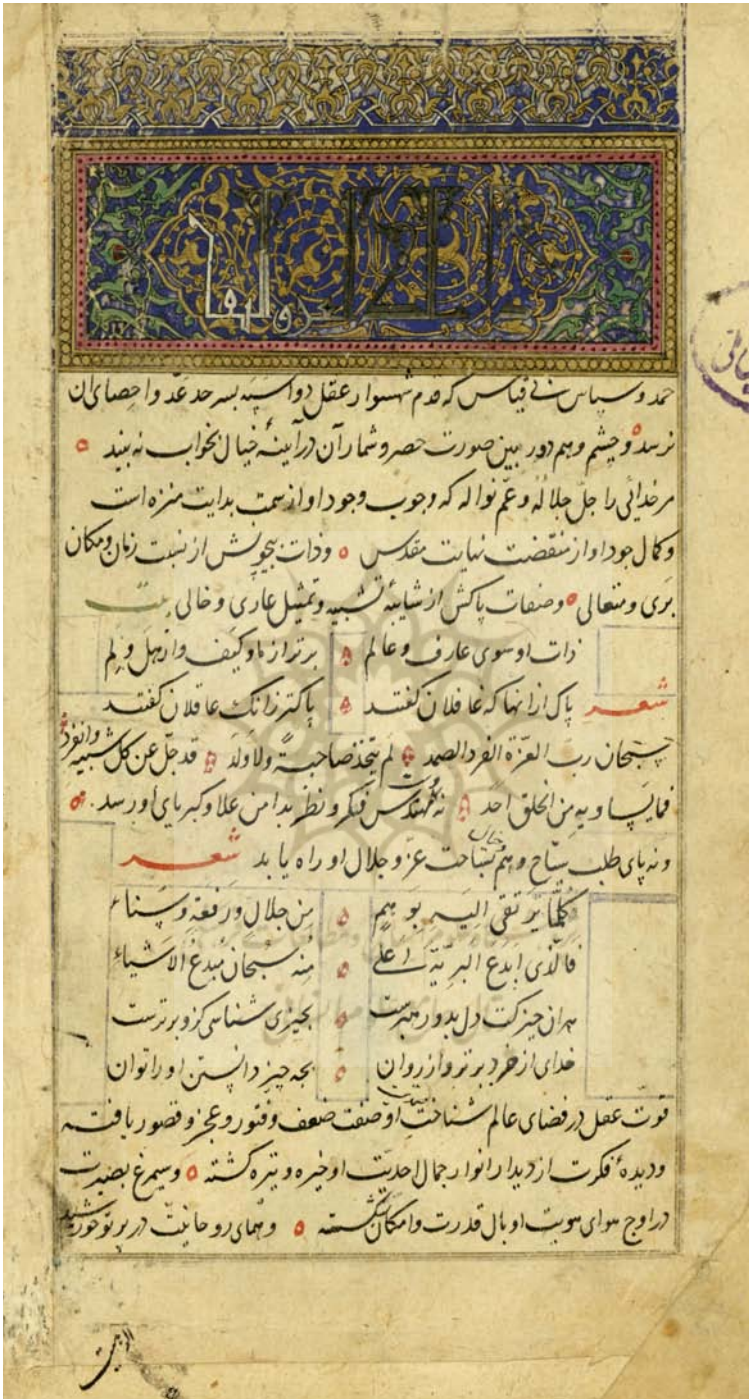 حمد و سپاس بی قیاس که قدم شهسوار عقل دو اسپه بسر حد عد و احصای ان
نرسد و چشم وهم دور بین صورت حصر و شمار آن در آینهٔ خیال بخواب نه بیند
مر خدائی را جلّ جلاله و عمّ نواله که وجوب وجود او از سمت بدایت منزه است
و کمال جود او از منقضت نهایت مقدس و ذات بیچونش از نسبت زمان و مکان
بری و متعالی و صفات پاکش از شایبهٔ تشبیه و تمثیل عاری و خالی بیت
ذات او سوی عارف و عالم برتر از ما و کیف و از هل و لم
شعر پاک ازانها که غافلان گفتند پاکتر زانک عاقلان گفتند
سبحان رب العزة الفرد الصمد لم یتخذ صاحبة ولا ولد قد جلّ عن کل شبیه وانفرد
فما یساویه من الخلق احد نه مهندس فکر و نظر بدامن علا و کبریای او رسد
و نه پای طلب سیاح وهم بساحت عزّ و جلال او راه یابد شعر
فکلّما یرتقی الیه بوهم من جلال ورفعة وسناء
فالّذی ابدع البریّة اعلی منه سبحان مبدع الاشیاء
هر ان چیز کت دل بدو رهبرست بچیزی شناسی کزو برترست
خدای از خرد برتر و از روان بچه چیز دانستن او را توان
قوت عقل در فضای عالم شناخت او صفت ضعف و فتور و عجز و قصور یافته
و دیدهٔ فکرت از دیدار انوار جمال احدیت او خیره و تیره گشته و سیمرغ بصیرت
در اوج هوای هویت او بال قدرت و امکان شکسته و همای روحانیت در پرتو خورشید